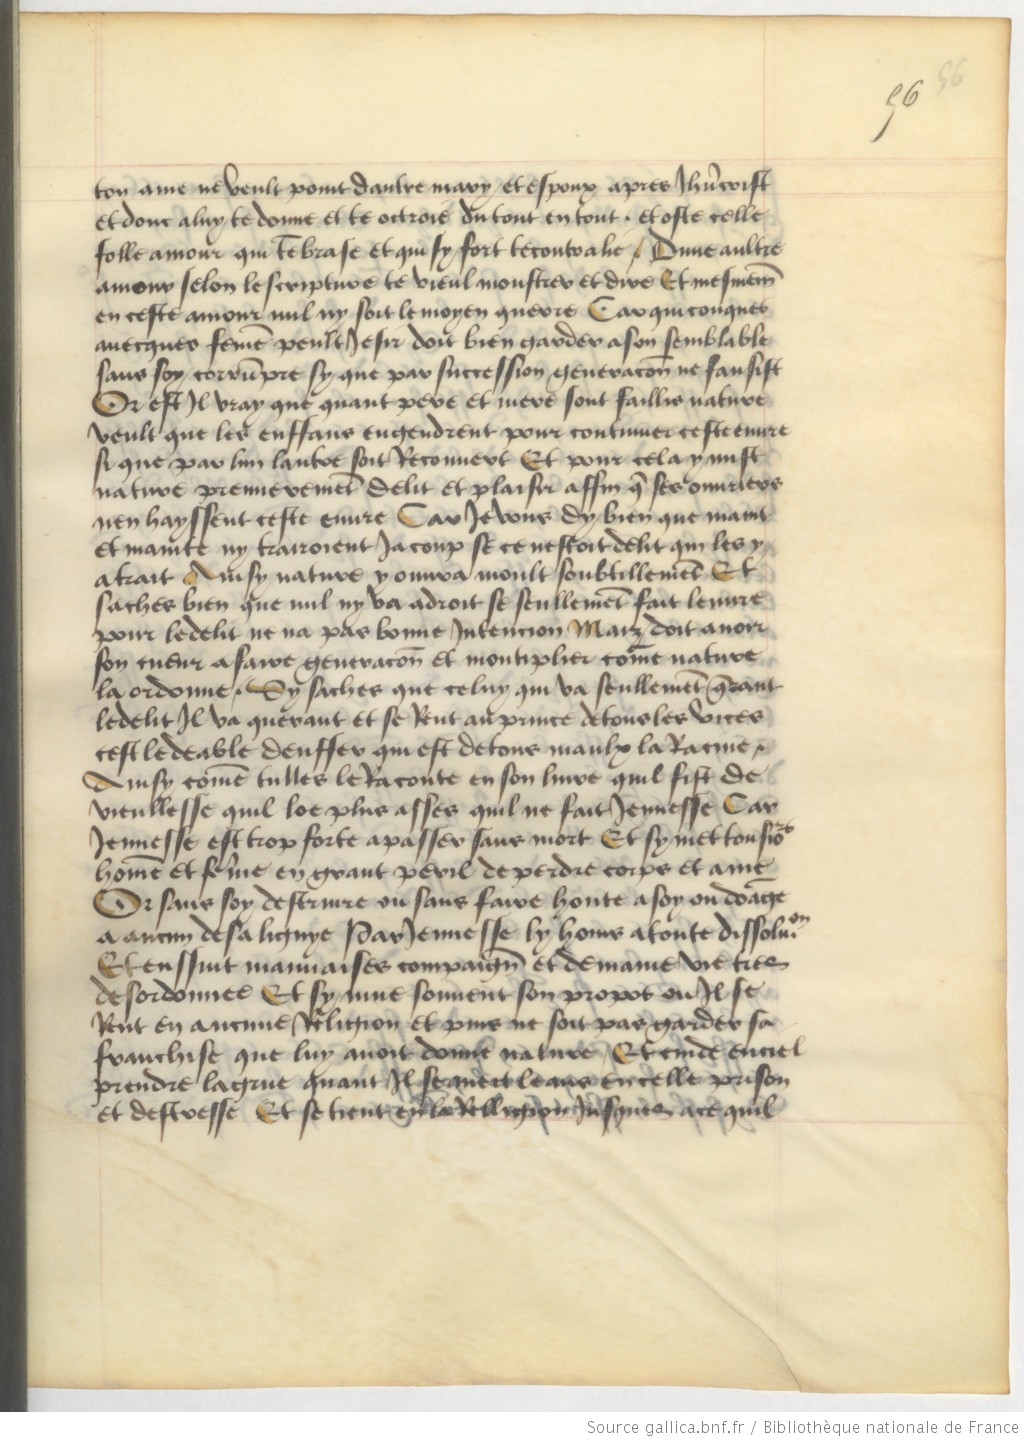 56 56
ton ame ne veult point dautre mary et espoux apres Jhūcrist
et donc a luy te donne et te octroie du tout en tout . et oste celle
folle amour qui tēbrase et qui sy fort te contralie / Dune aultre
amour selon lescripture te vieul monstrer et dire Et mesmemēt
en ceste amour nul ny soit le moyen querre Car quiconques
auecques femē peult Jesir doit bien garder a son semblable
sans soy corrūpre sy que par succession generacōn ne fausist
Or est Il vray que quant pere et mere sont faillis nature
veult que les enffans engendrent pour continuer ceste euure
si que par lun lautre soit Recouuert Et pour cela y mist
nature premieremēt delit et plaisir affin q̄ ses ouuriers
nen hayssent ceste euure Car Je vous dy bien que maint
et mainte ny trairoient Ja coup se ce nestoit delit qui les y
atrait Ainsy nature y ouura moult soubtillemēt Et
saches bien que nul ny va adroit se seullemēt fait leuure
pour le delit ne na pas bonne Intencion Maiz doit auoir
son cueur a faire generacōn et montiplier comē nature
la ordonne . Sy saches que celuy qui va seullemēt q̄rant
le delit Il va querant et se Rent au prince de tous les vices
cest le deable denffer qui est de tous maulx la Racine .
Ainsy comē tulles le Raconte en son liure quil fist de
viellesse quil loe plus asses quil ne fait Jennesse Car
Jennesse est trop forte a passer sans mort Et sy met tousiors
homē et fēme en grant peril de perdre corps et ame
Or sans soy destruire ou sans faire honte a soy ou dōage
a aucun de sa lignye Par Jennesse ly homs a toute dissoluion
Et enssuit mauuaises compaign̄ et demaine vie tres
desordonnee Et sy mue souuent son propot ou Il se
Rent en aucune Religion et puis ne soit pas garder sa
franchise que luy auoit donne nature Et cuide en ciel
prendre la grue quant Il se met leans en celle prison
et destresse Et se tient en la Relligion Jusques a ce quil
Source gallica.bnf.fr / Bibliothèque nationale de France